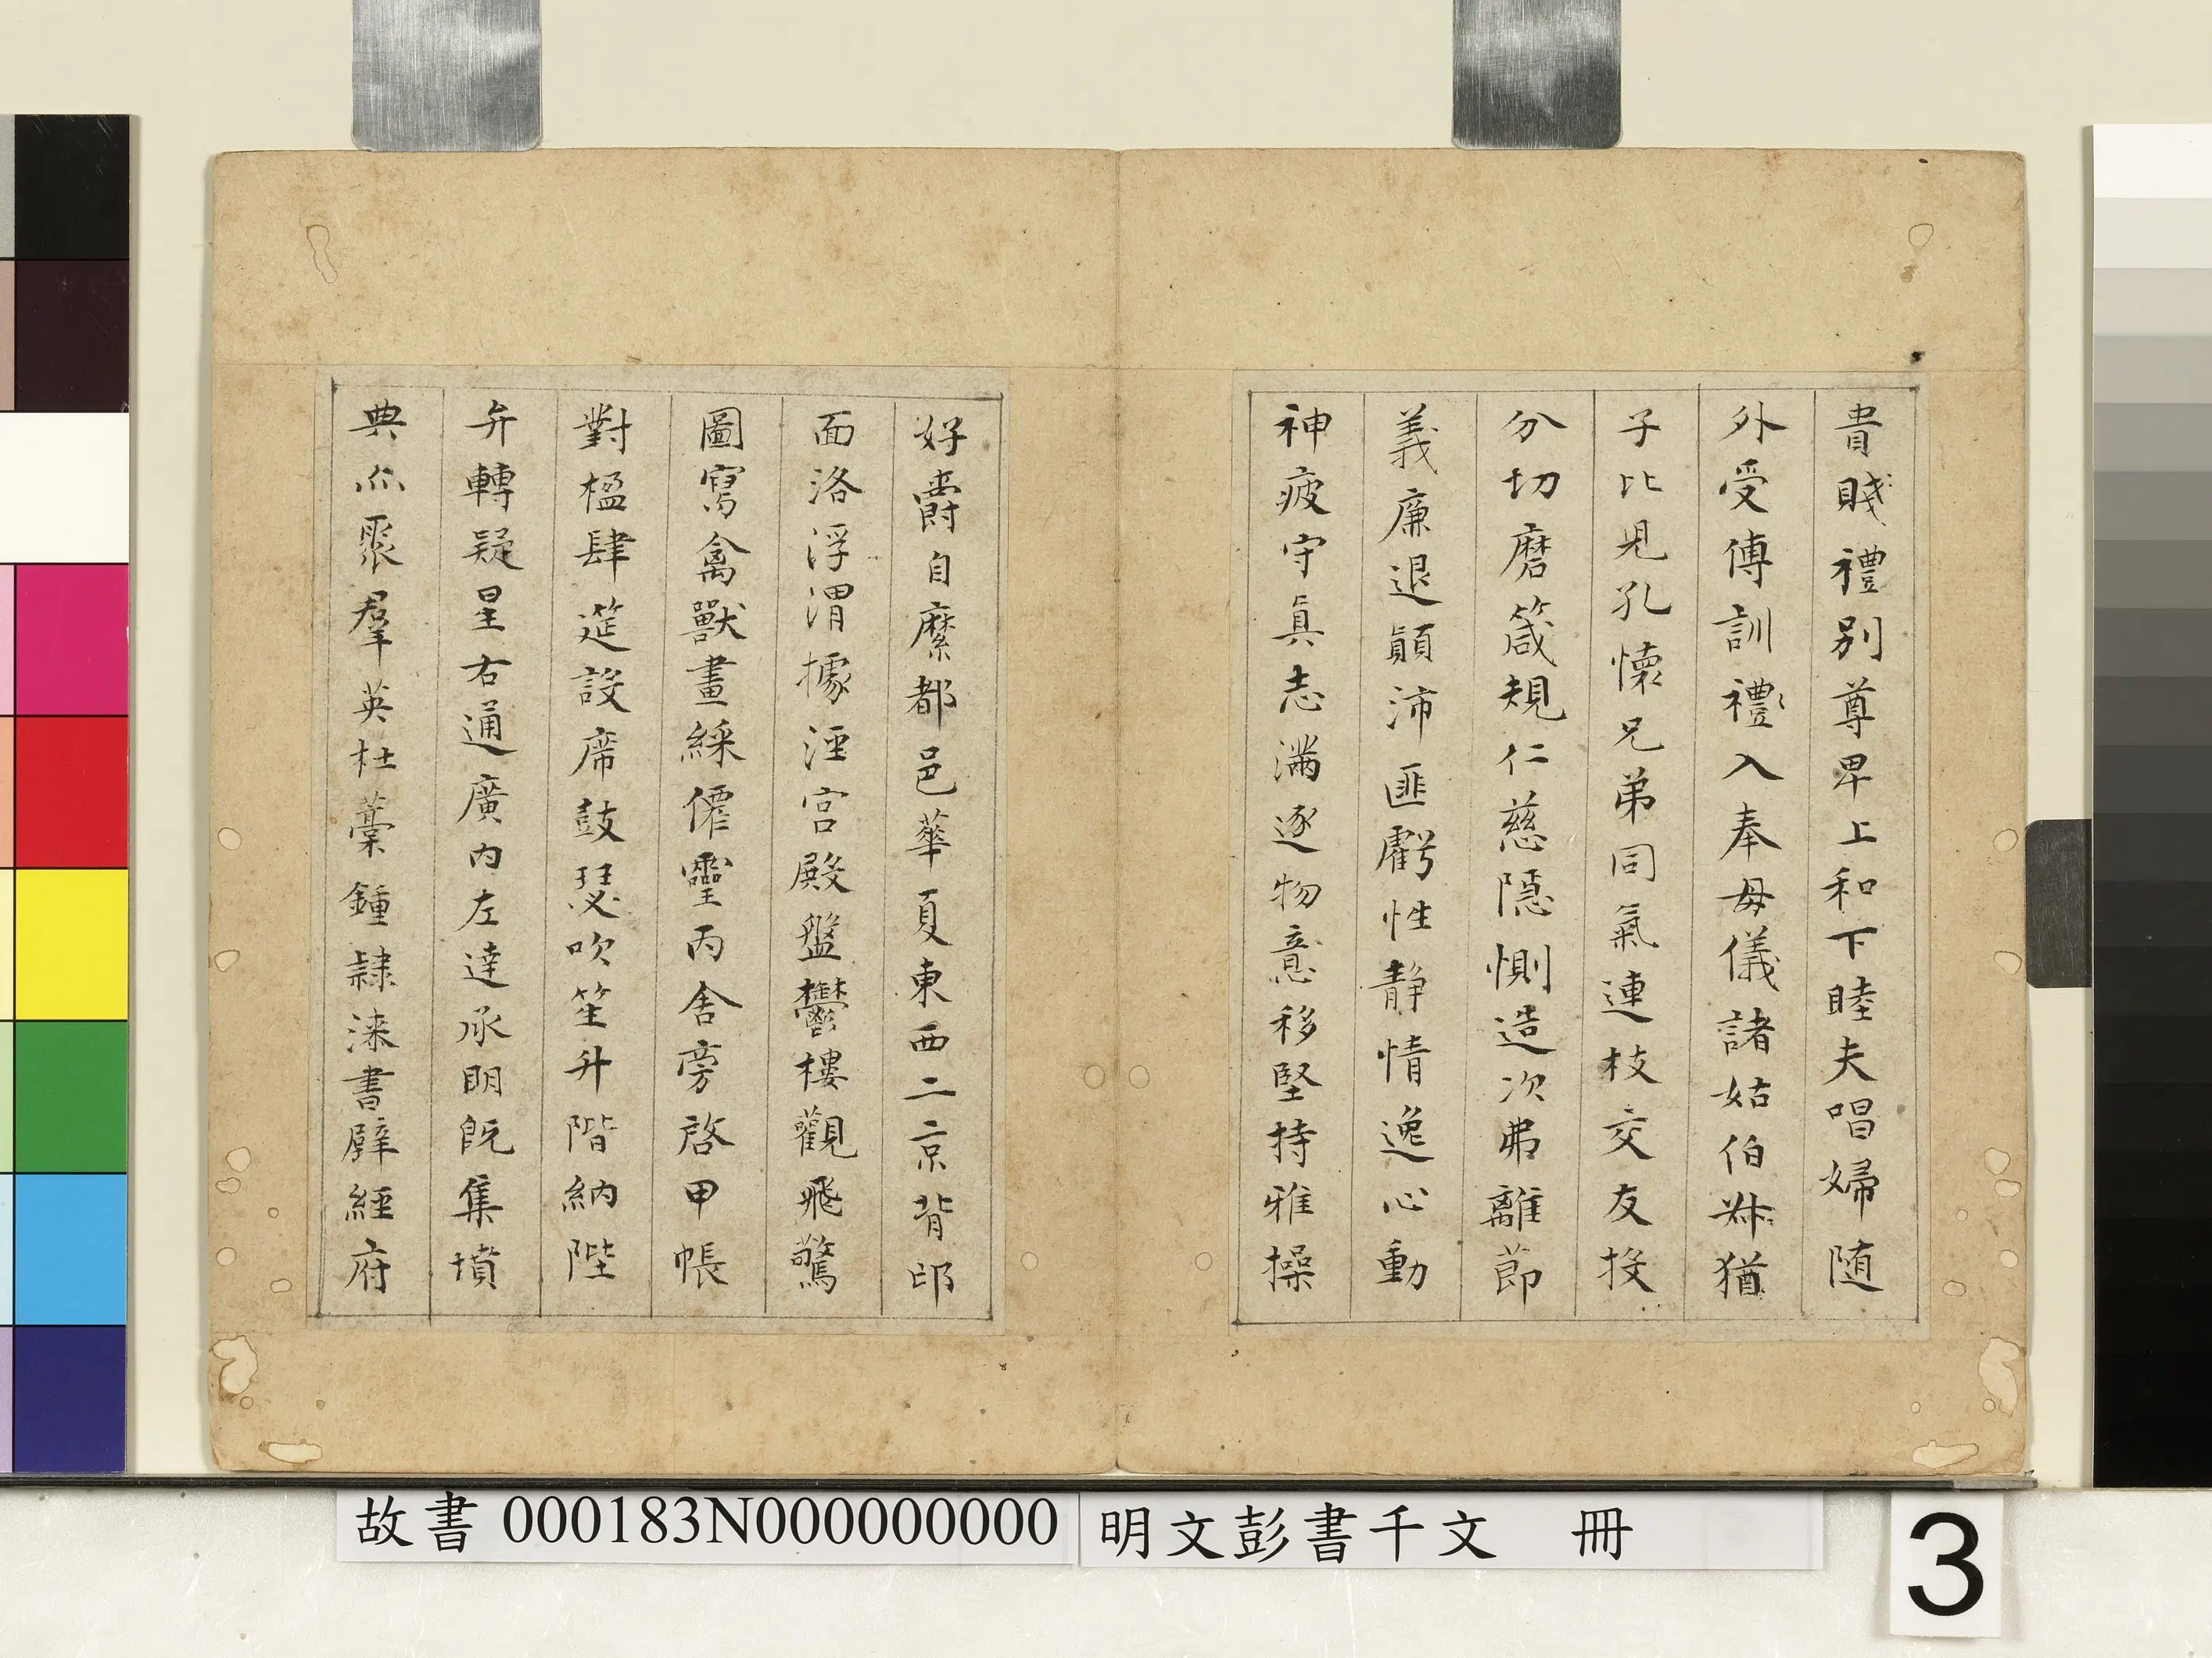 貴賤禮別尊卑上和下睦夫唱婦随
外受傅訓禮入奉母儀諸姑伯叔猶
子比兒孔懷兄弟同氣連枝交友投
分切磨箴規仁慈隱惻造次弗離節
義廉退顛沛匪虧性静情逸心動
神疲守真志滿逐物意移堅持雅操
好爵自縻都邑華夏東西二京背邙
面洛浮渭據涇宮殿盤鬱樓觀飛驚
圖寫禽獸畫綵僊靈丙舍旁啓甲帳
對楹肆筵設席鼓瑟吹笙升階納陛
弁轉疑星右通廣内左達承明既集墳
典亦聚羣英杜藁鍾隷漆書壁經府
故書 000183N000000000
明文彭書千文 冊
3